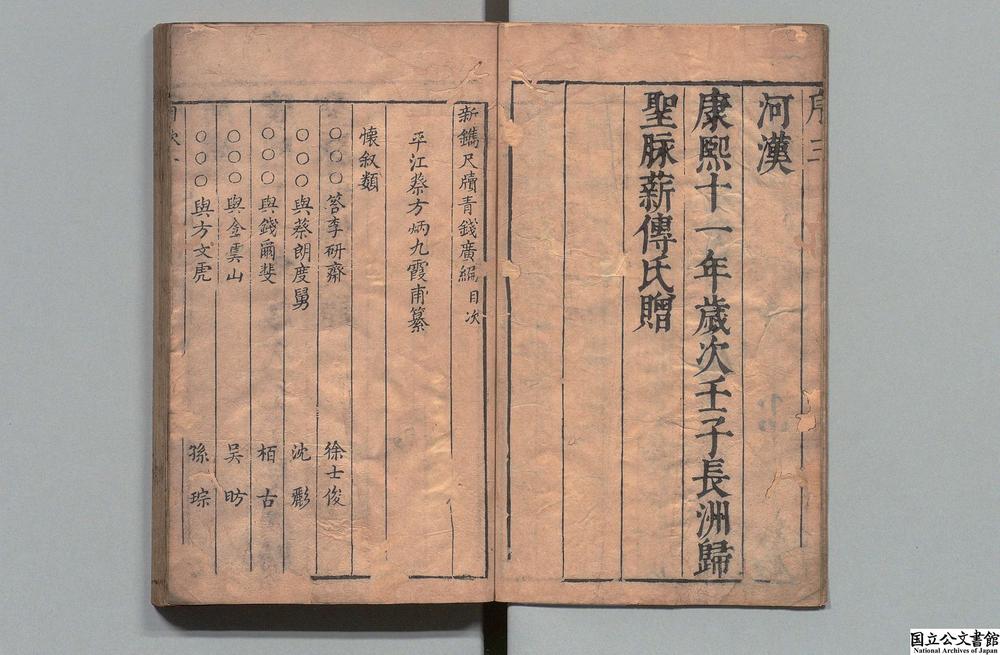 序三
河漢
康熙十一年歲次壬子長洲歸
聖脉薪傳氏贈
新鐫尺牘青錢廣編目次
平江蔡方炳九霞甫纂
懷叙類
○○○答李研齋 徐士俊
○○○與蔡朗度舅 沈彲
○○○與錢爾斐 栢古
○○○與金雲山 吴昉
○○○與方文虎 孫琮
国立公文書館
National Archives of Japan